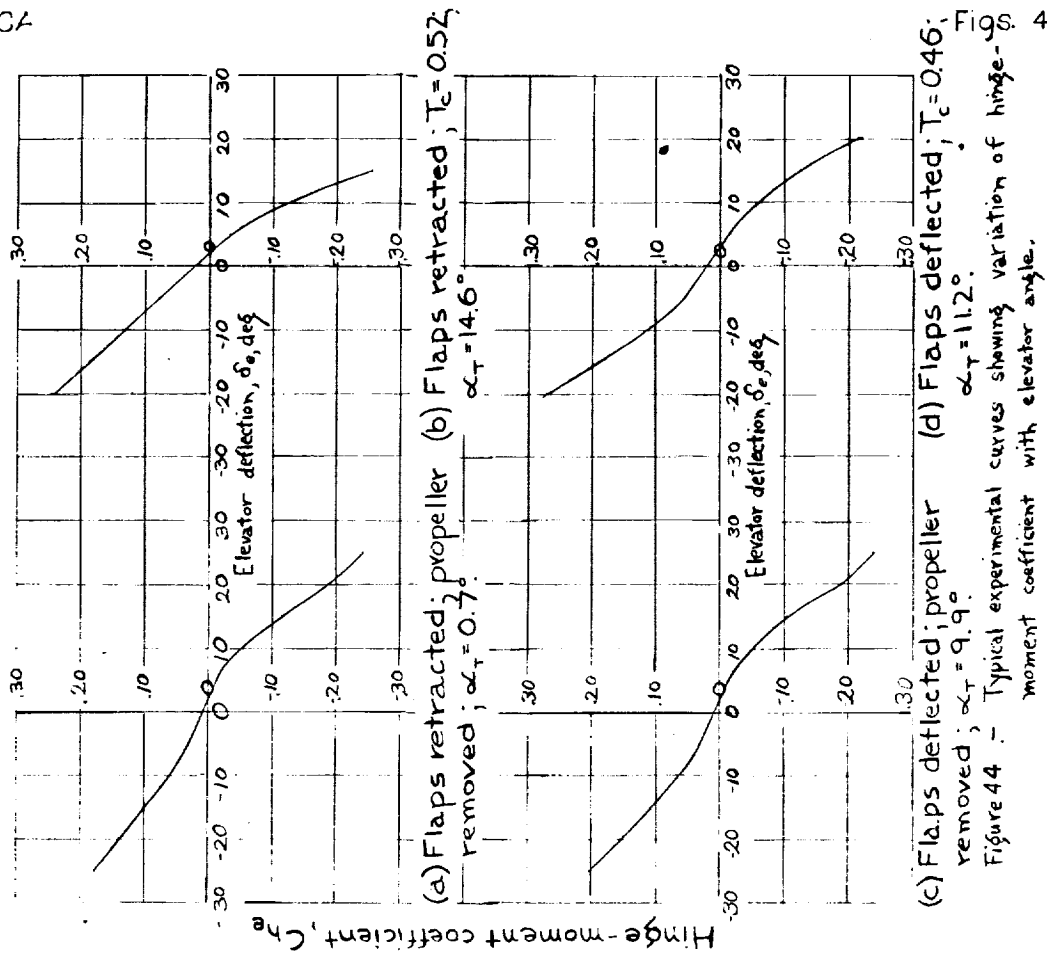 CA
Figs. 4
Hinge-moment coefficient, Che
.30
.20
.10
0
-.10
-.20
-.30
-30 -20 -10 0 10 20 30
Elevator deflection, δe, deg
-30 -20 -10 0 10 20 30
(a) Flaps retracted; propeller
removed; αT = 0.7°.
(b) Flaps retracted; Tc = 0.52;
αT = 14.6°
.30
.20
.10
0
.10
.20
.30
-30 -20 -10 0 10 20 30
Elevator deflection, δe, deg
-30 -20 -10 0 10 20 30
(c) Flaps deflected; propeller
removed; αT = 9.9°.
(d) Flaps deflected; Tc = 0.46;
αT = 11.2°.
Figure 44 .- Typical experimental curves showing variation of hinge-
moment coefficient with elevator angle.